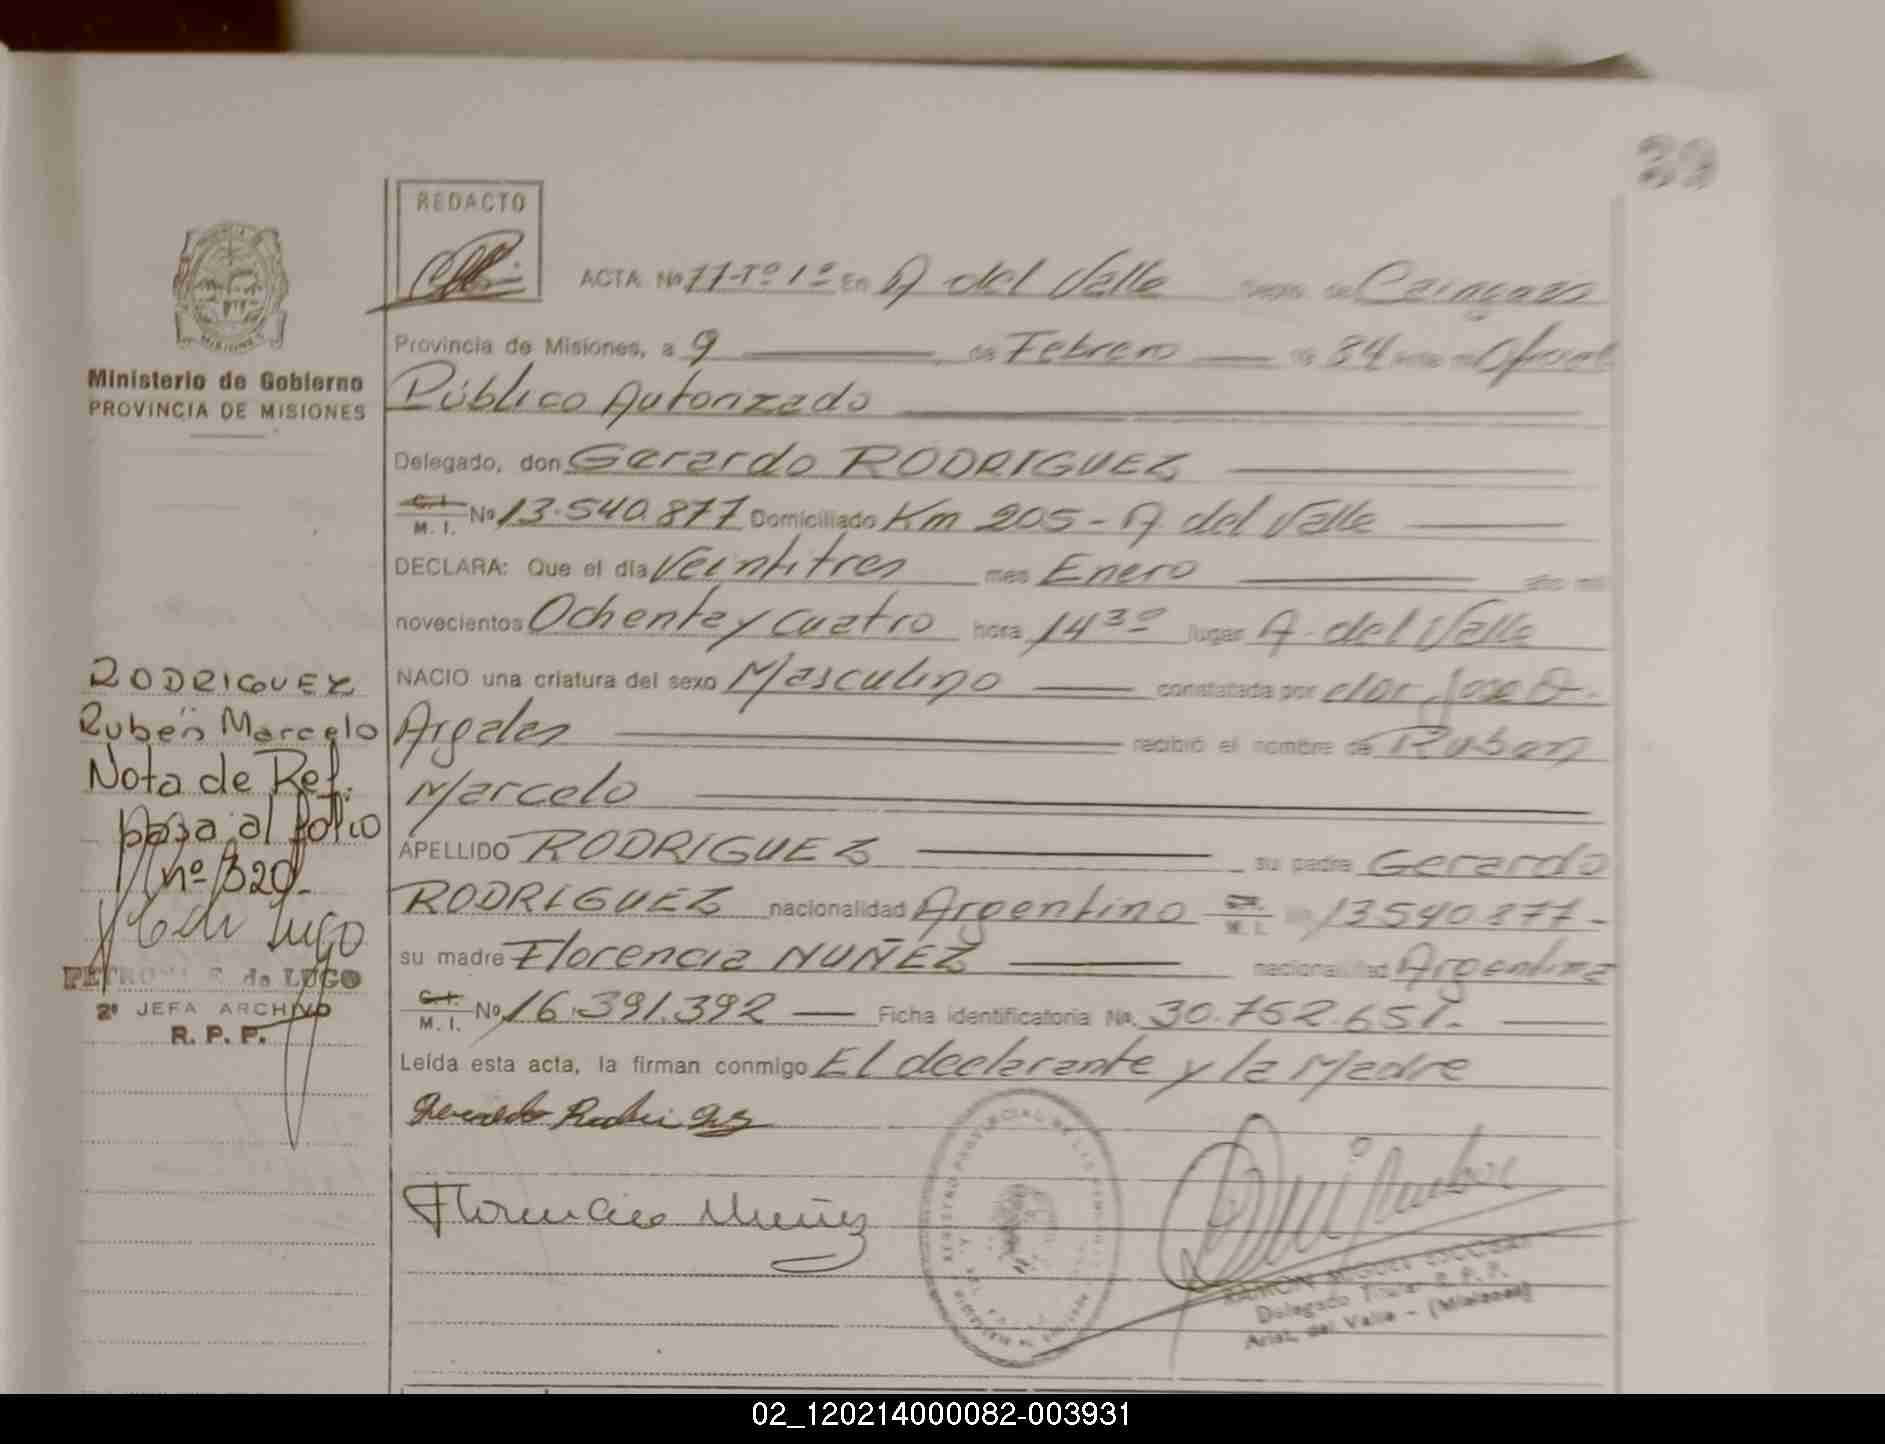 39
REDACTO
ACTA No 11-Tº 1º En A del Valle
Provincia de Misiones, a 9 de Febrero de 84 Oficial
Público Autorizado
Delegado, don Gerardo RODRIGUEZ
C.I. M. I. No 13.540.877 Domiciliado Km 205 - A del Valle
DECLARA: Que el día Veintitres mes Enero año mil
novecientos Ochenta y Cuatro hora 14 30 lugar A. del Valle
NACIO una criatura del sexo Masculino constatada por el Dr. Jose
Argeles recibió el nombre de Ruben
Marcelo
APELLIDO RODRIGUEZ su padre Gerardo
RODRIGUEZ nacionalidad Argentino C.I. M. I. No 13540.877-
su madre Florencia NUÑEZ nacionalidad Argentina
C.I. M. I. No 16.391.392 Ficha identificatoria No. 30.752.651.
Leída esta acta, la firman conmigo El declarante y la Madre
Gerardo Rodriguez
Florencia Nuñez
RAMON MIGUEL
Delegado Titular R. P. P.
Arist. del Valle - (Misiones)
MISIONES
Ministerio de Gobierno
PROVINCIA DE MISIONES
RODRIGUEZ
Rubén Marcelo
Nota de Ref.
pasa al folio
nº 320.-
de Lugo
de LUGO
2º JEFA ARCHIVO
R. P. P.
02_120214000082-003931